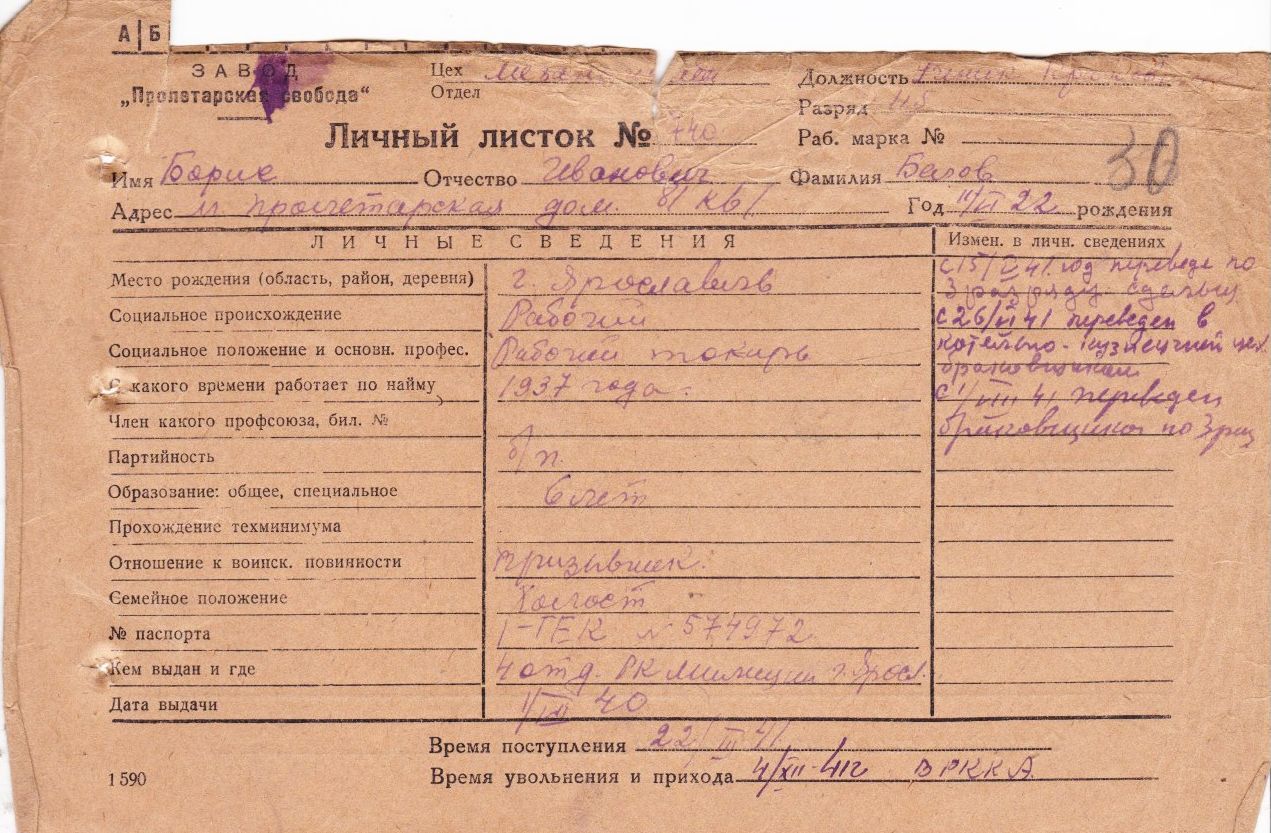 А|Б
ЗАВОД
„Пролетарская свобода“
Цех
Отдел
Должность
Разряд
Личный листок № 740
Раб. марка №
30
Имя Борис Отчество Иванович Фамилия Белов
Адрес п пролетарская дом. 8/ кв/ Год 11/VI 22 рождения
ЛИЧНЫЕ СВЕДЕНИЯ Измен. в личн. сведениях
Место рождения (область, район, деревня) г. Ярославль
Социальное происхождение Рабочий
Социальное положение и основн. професс. Рабочий токарь
С какого времени работает по найму 1937 года.
Член какого профсоюза, бил. №
Партийность б/п.
Образование: общее, специальное 6 лет
Прохождение техминимума
Отношение к воинск. повинности призывник.
Семейное положение Холост
№ паспорта I-ГЕК № 574972
Кем выдан и где 4 отд. РК милиции г. Яросл.
Дата выдачи 40
год переведе по
3 разряду сдельщ
с 26/VI 41 переведен в
котельно-кузнечный цех
браковщиком
с 1/VIII 41 переведен
браковщиком по 3 раз
Время поступления 22/III 41
Время увольнения и прихода 4/XII-41г в РККА.
1590